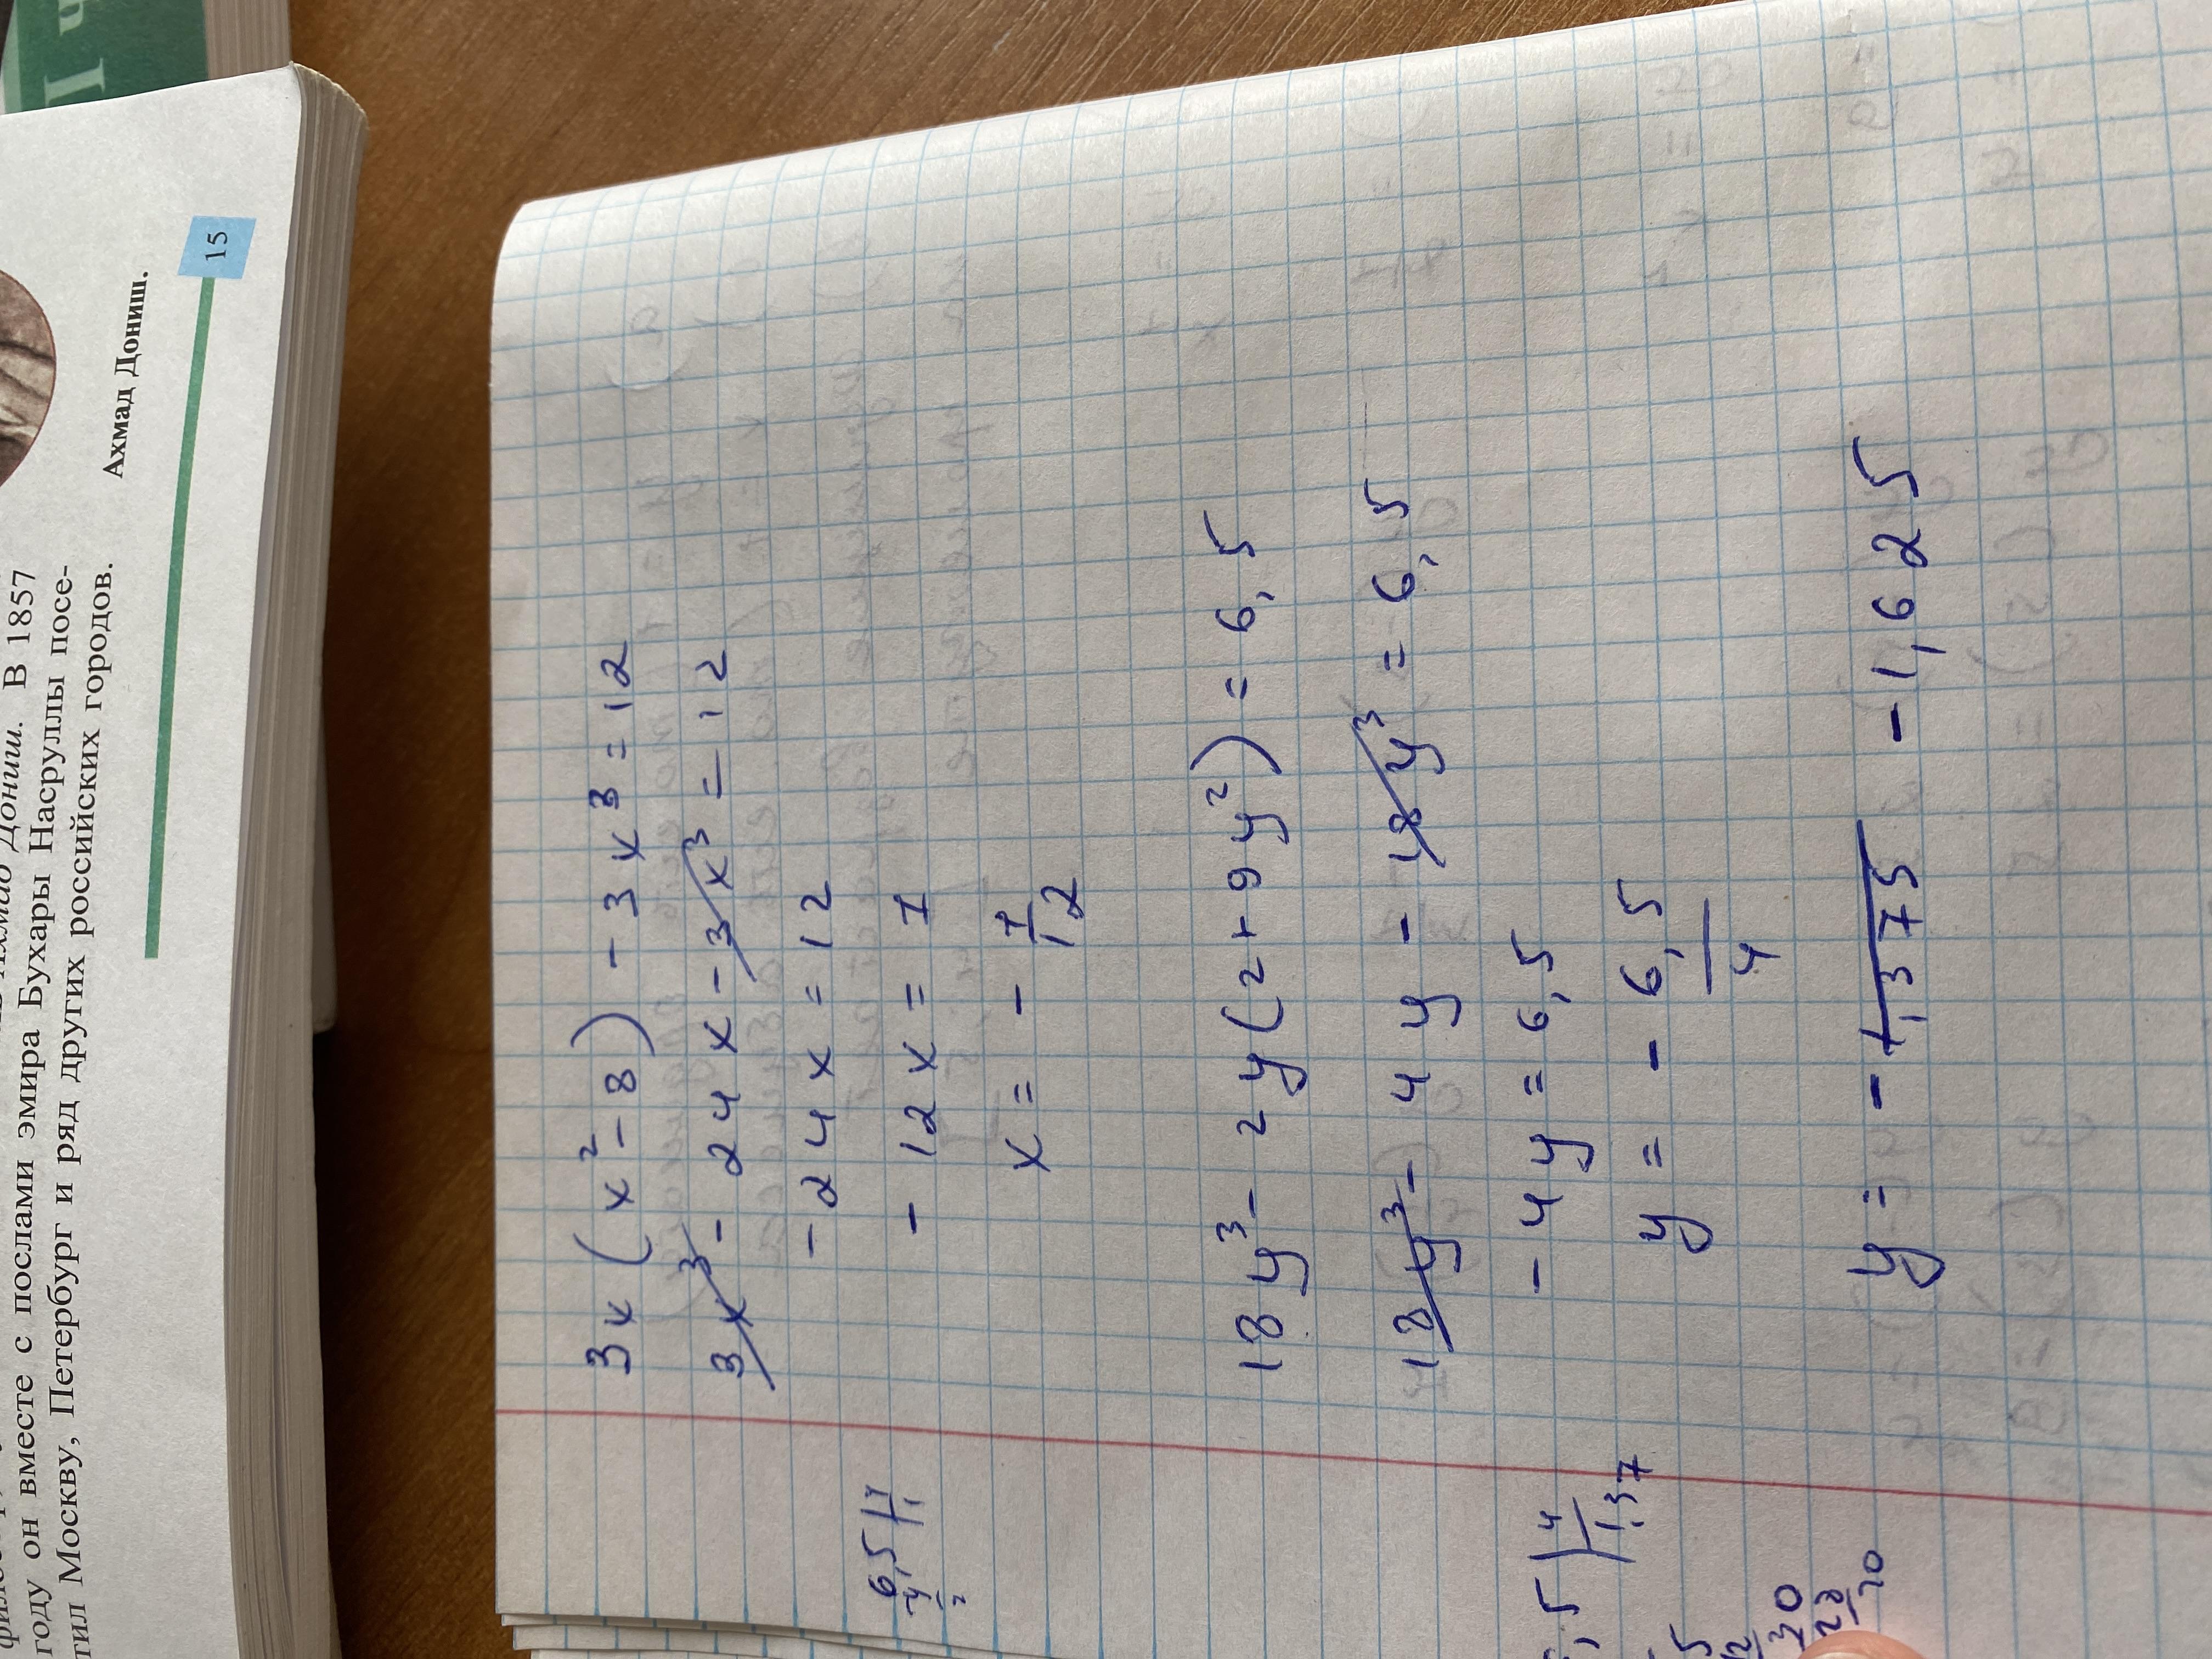 Ахмад Дониш. В 1857
году он вместе с послами эмира Бухары Насруллы посе-
тил Москву, Петербург и ряд других российских городов.
Ахмад Дониш.
15
3x(x²-8)-3x³=12
3x³-24x-3x³=12
-24x=12
-12x=1
x=-1/12
18y³-2y(2+9y²)=6,5
18y³-4y-18y³=6,5
-4y=6,5
y=-6,5/4
y=-1,375 -1,625
6,5|4
1
,5|4
1,37
30
28
20